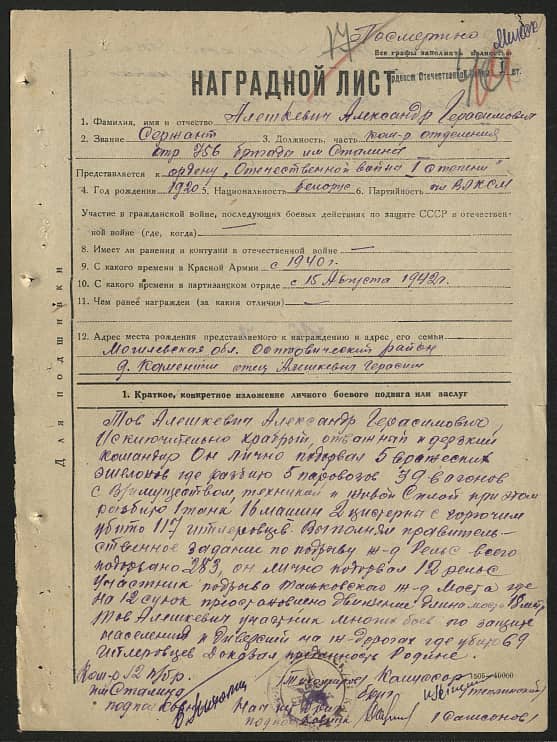 Посмертно
17
Все графы заполнять полностью
НАГРАДНОЙ ЛИСТ
Орденом Отечественной войны I ст.
1. Фамилия, имя и отчество Алешкевич Александр Герасимович
2. Звание Сержант 3. Должность, часть ком-р отделения
отр 756 бригада им Сталина
Представляется к ордену „Отечественная война I степени"
4. Год рождения 1920 5. Национальность белорус 6. Партийность чл ВЛКСМ
Участие в гражданской войне, последующих боевых действиях по защите СССР и отечествен-
ной войне (где, когда) —
8. Имеет ли ранения и контузии в отечественной войне —
9. С какого времени в Красной Армии с 1940 г.
10. С какого времени в партизанском отряде с 15 Августа 1942 г.
11. Чем ранее награжден (за какия отличия) —
12. Адрес места рождения представляемого к награждению и адрес его семьи
Могилевская обл. Осиповический район
д. Каменичи отец Алешкевич Герасим
Для подшивки
1. Краткое, конкретное изложение личного боевого подвига или заслуг
Тов Алешкевич Александр Герасимович,
Исключительно храбрый, отважный и дерзкий
командир Он лично подорвал 5 вражеских
эшелонов где разбито 5 паровозов 39 вагонов
с Вримуществом, техникой и живой Силой при этом
разбито 1 танк 16 машин 2 цистерны с горючим
убито 117 гитлеровцев. Выполняя правитель-
ственное задание по подрыву ж-д Рельс всего
подорвано 283, он лично подорвал 12 рельс
Участник подрыва ж-д Моста где
на 12 суток приостановлено движение длина моста 18 мтр
Тов Алешкевич участник многих боев по защите
населения и Диверсий на ж-дорогах где убито 69
Гитлеровцев Доказал преданность Родине.
Ком-р 12 п/бр.
им Сталина
подполковник
Комиссар
Нач
подполковник
1505—40000